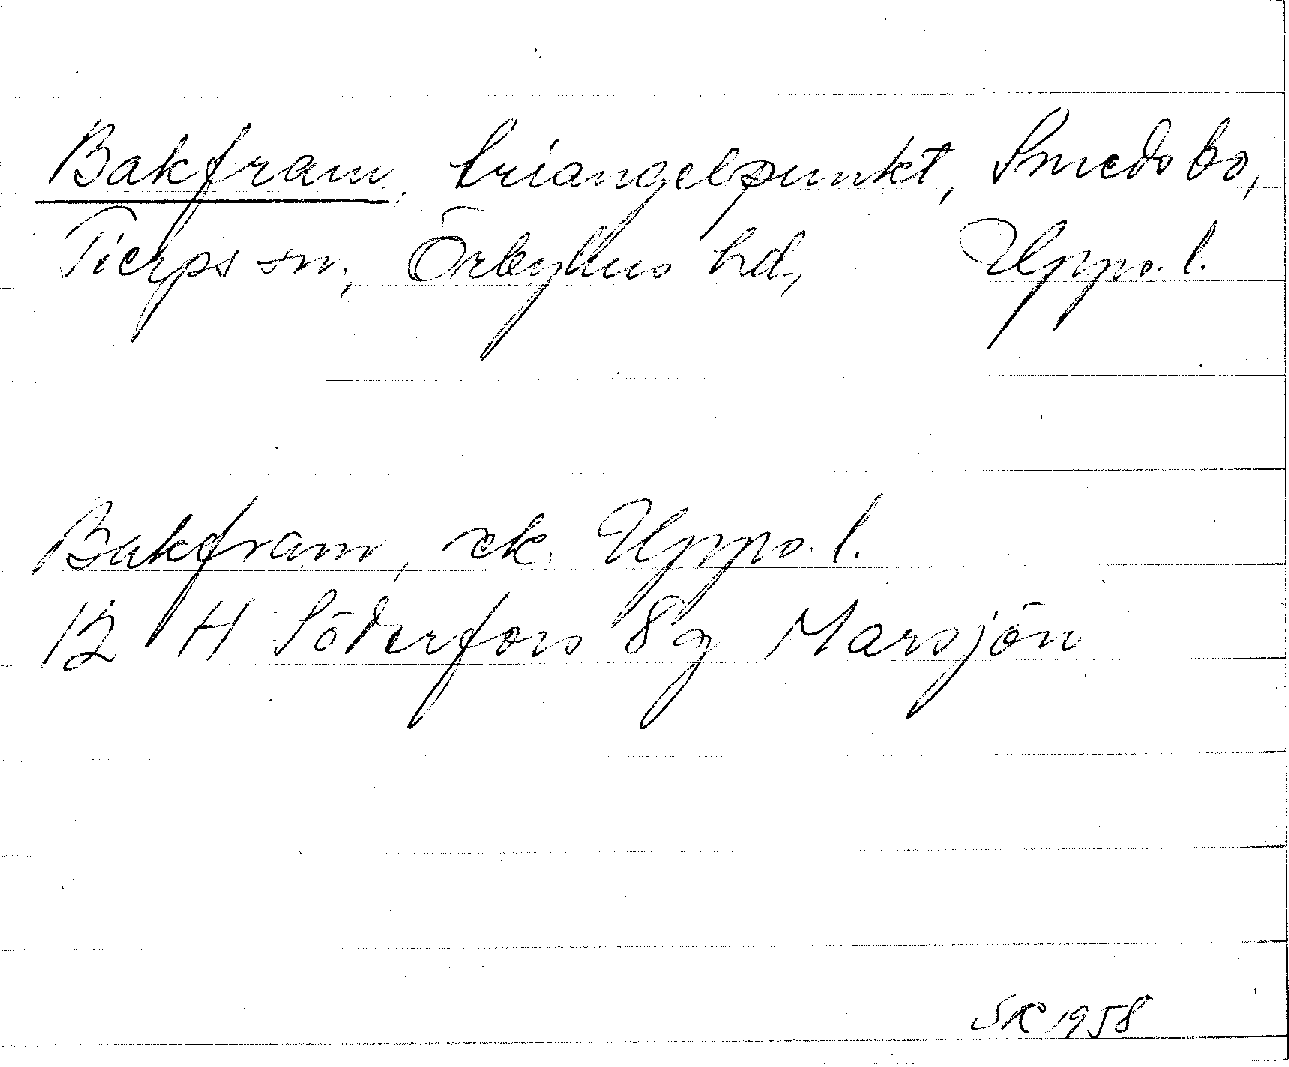 Bakfram, triangelpunkt, Smedsbo,
Tierps sn, Örbyhus hd, Upps. l.
Bakfram, ek. Upps. l.
12 H Söderfors 8g Marsjön
SK 1958